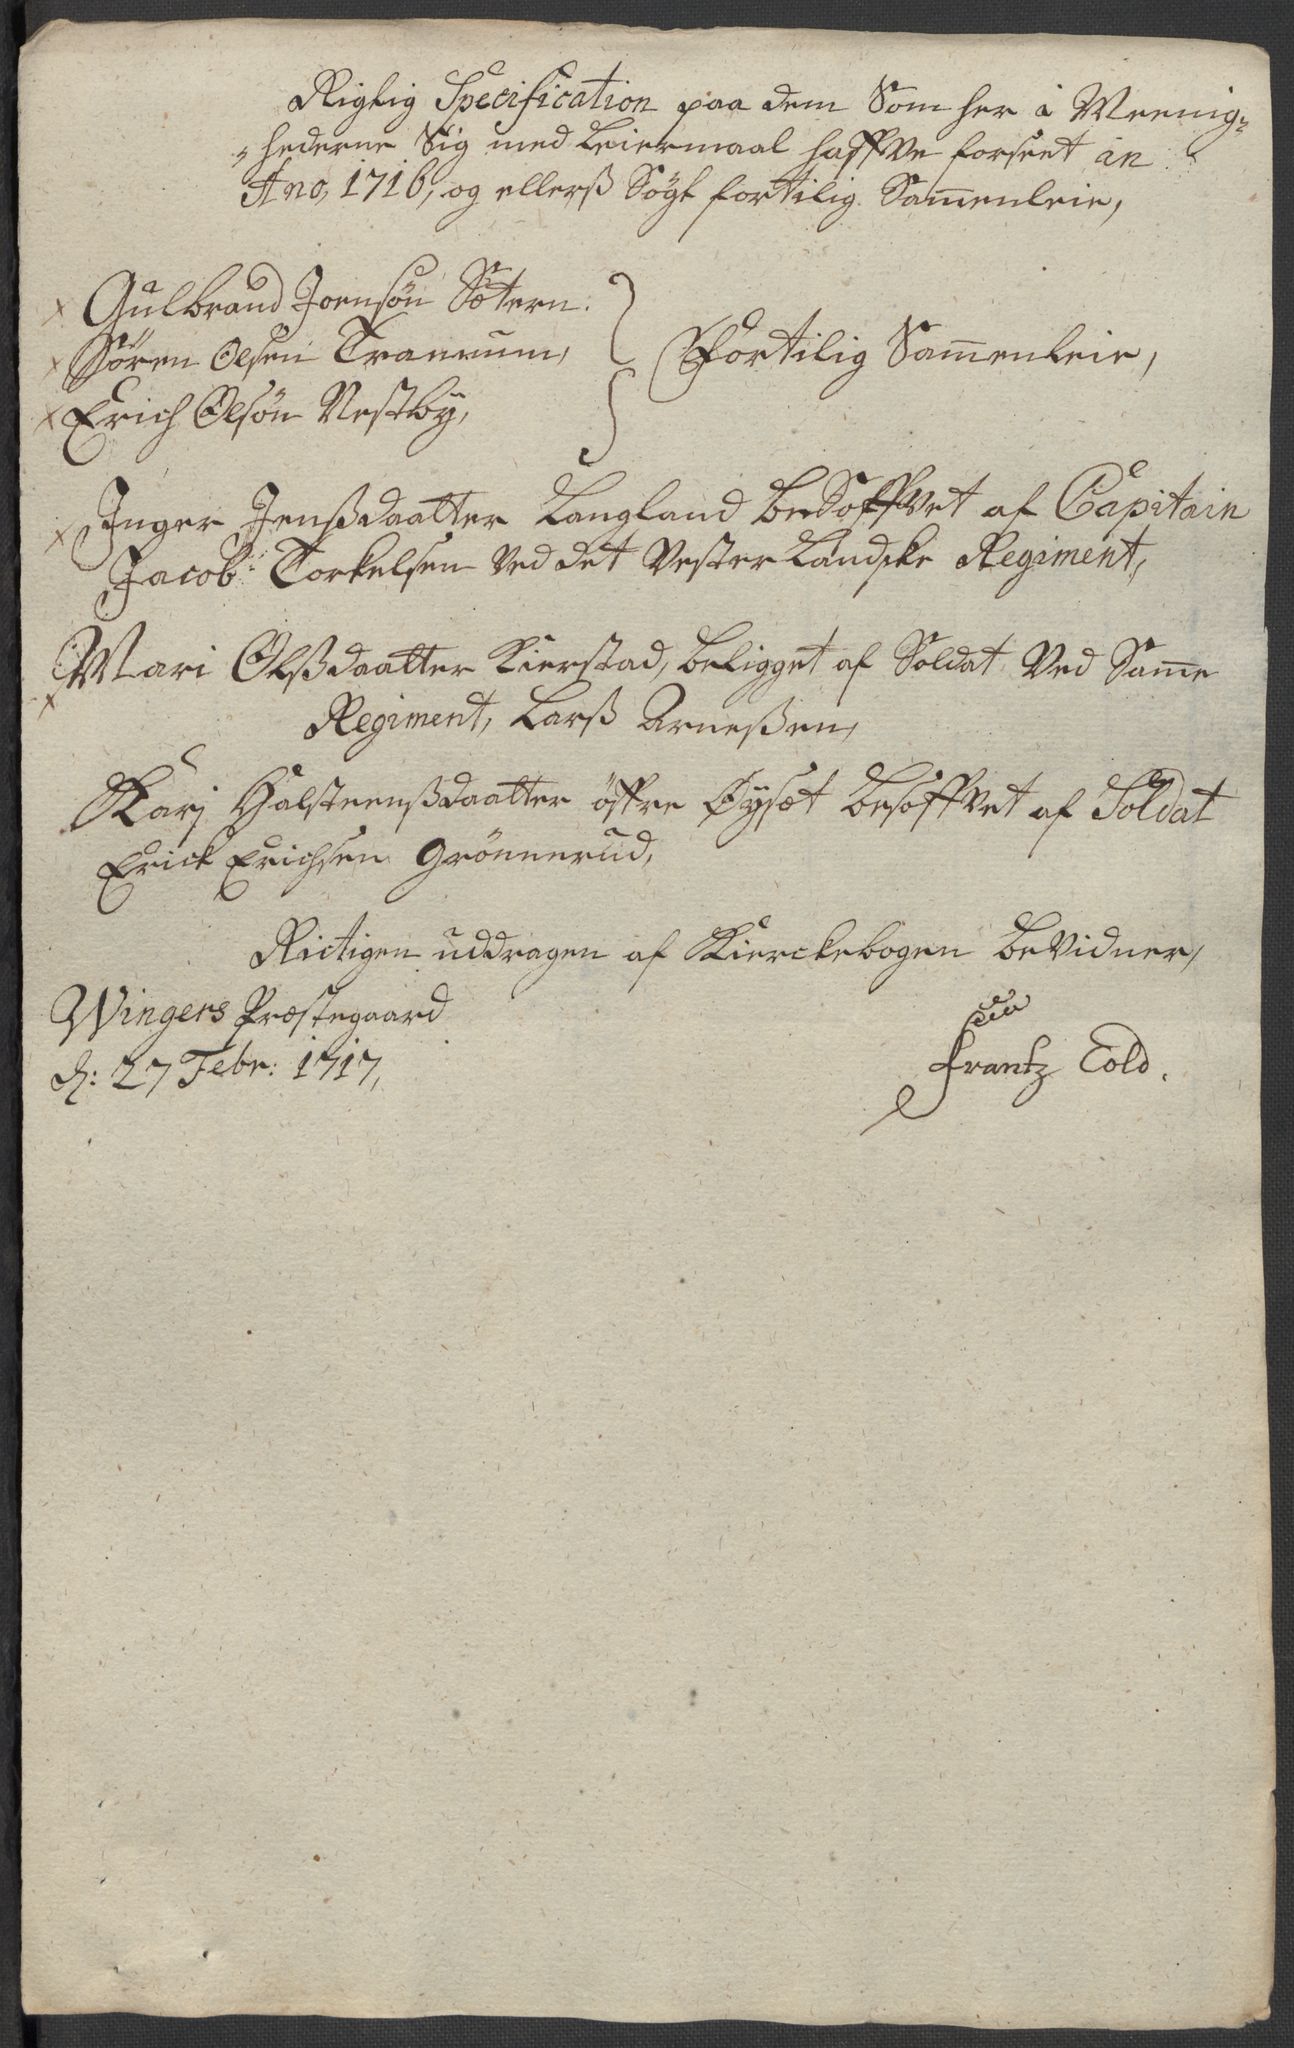 Rigtig Specification paa dem Som her i Meenig=
=hederne Sig med Leiermaal haffve forseet in
Ano, 1716, og ellerß Søgt fortilig Sam̅enleie,
x Gulbrand Joensøn Sætern.
x Sören Olsen Tranrum,
x Erich Olsøn Vestby,
Fortilig Sam̅enleie,
x Inger Jenßdaatter Langland besoffvet af Capitain
Jacob Torkelsen Ved det Vesterlandske Regiment,
x Mari Olßdaatter Kierstad, beligget af Soldat Ved Sam̅e
Regiment, Larß Arneßen,
Kari Halsteenßdaatter öffre Øysæt besoffvet af Soldat
Erick Erichsen Grönnerud,
Rictigen uddragen af Kierckebogen beVidner,
Wingers Præstegaard
d: 27 Febr: 1717,
Frantz Cold.